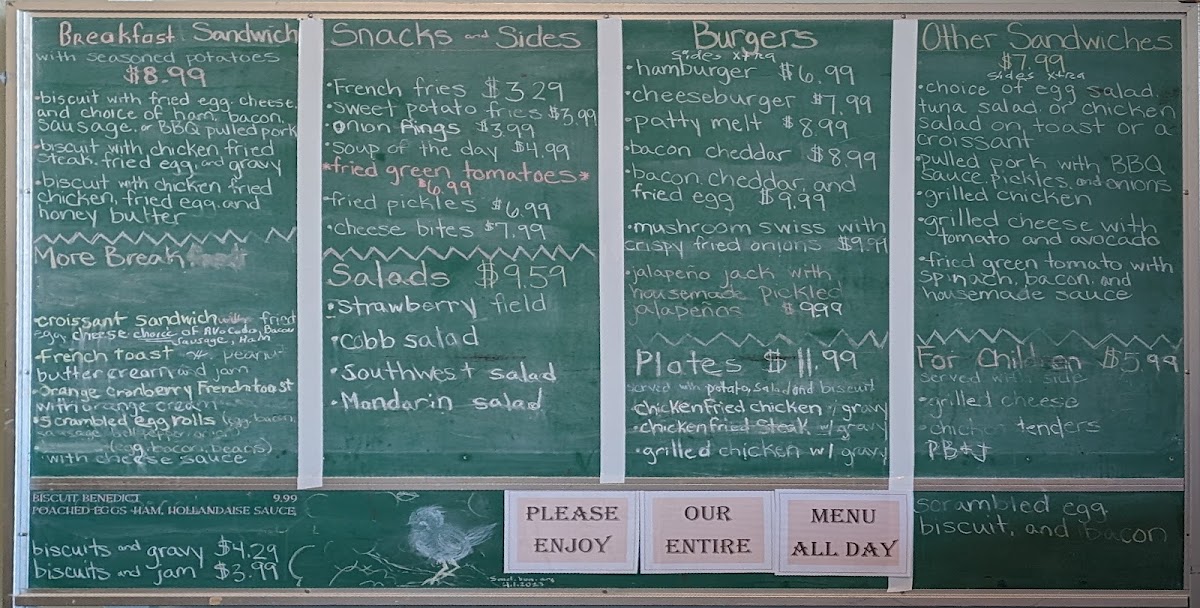 Breakfast Sandwich
with seasoned potatoes
$8.99
•biscuit with fried egg, cheese,
and choice of ham, bacon,
sausage, or BBQ pulled pork
•biscuit with chicken fried
steak, fried egg, and gravy
•biscuit with chicken fried
chicken, fried egg, and
honey butter
More Break
•croissant sandwich with fried
egg, cheese choice of Avocado, Bacon
sausage, Ham
•French toast w. peanut
butter cream and jam
•Orange cranberry French toast
with orange cream
•Scrambled egg rolls (egg, bacon,
sausage, bell pepper, onion)
(egg, bacon, beans)
with cheese sauce
BISCUIT BENEDICT 9.99
POACHED EGGS, HAM, HOLLANDAISE SAUCE
biscuits and gravy $4.29
biscuits and jam $3.99
Snacks and Sides
•French fries $3.29
•sweet potato fries $3.99
•onion rings $3.99
•soup of the day $4.99
*fried green tomatoes*
$6.99
•fried pickles $6.99
•cheese bites $7.99
Salads $9.59
•strawberry field
•cobb salad
•southwest salad
•Mandarin salad
4.1.2023
Burgers
sides xtra
•hamburger $6.99
•cheeseburger $7.99
•patty melt $8.99
•bacon cheddar $8.99
•bacon, cheddar, and
fried egg $9.99
•mushroom swiss with
crispy fried onions $9.99
•jalapeño jack with
housemade pickled
jalapeños $9.99
Plates $11.99
served with potato, salad and biscuit
chicken fried chicken w/ gravy
•chicken fried steak w/ gravy
•grilled chicken w/ gravy
PLEASE
ENJOY
OUR
ENTIRE
MENU
ALL DAY
Other Sandwiches
$7.99
sides xtra
•choice of egg salad,
tuna salad, or chicken
salad on toast or a
croissant
•pulled pork with BBQ
sauce, pickles, and onions
•grilled chicken
•grilled cheese with
tomato and avocado
•fried green tomato with
spinach, bacon, and
housemade sauce
For Children $5.99
served with side
•grilled cheese
•chicken tenders
PB&J
scrambled egg
biscuit, and Bacon